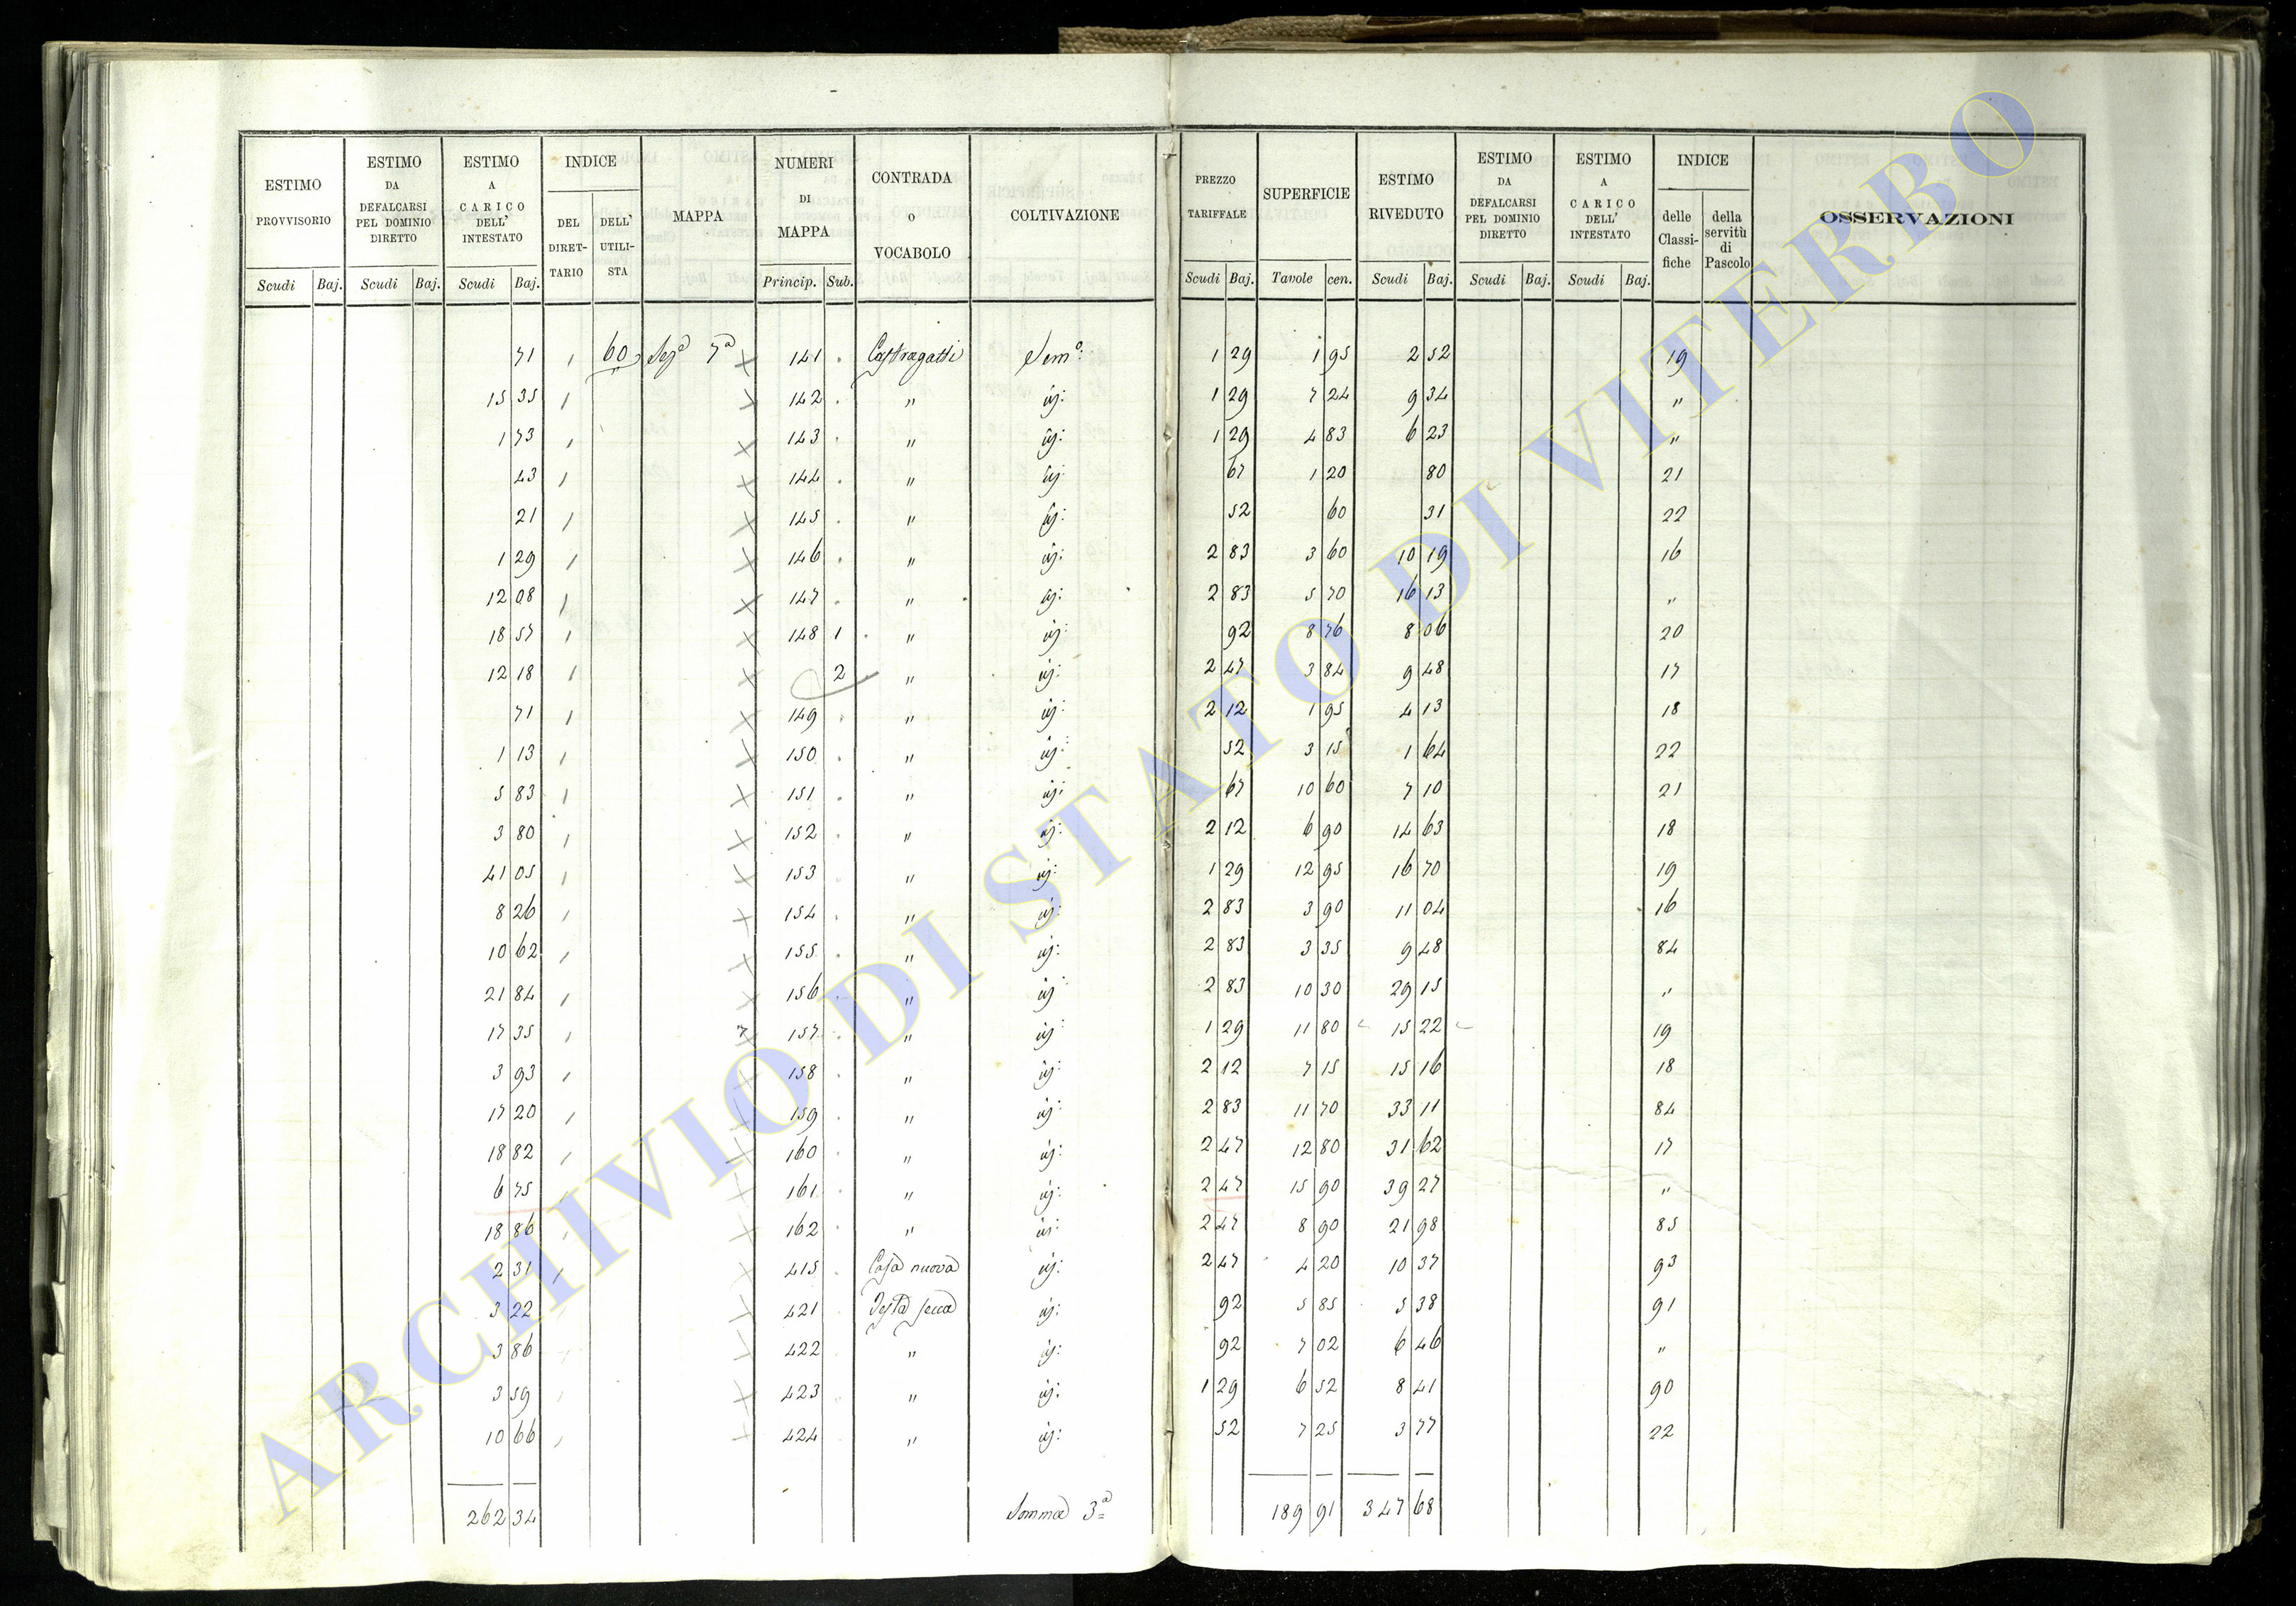 ESTIMO PROVVISORIO | ESTIMO DA DEFALCARSI PEL DOMINIO DIRETTO | ESTIMO A CARICO DELL' INTESTATO | INDICE | MAPPA | NUMERI DI MAPPA | CONTRADA o VOCABOLO | COLTIVAZIONE | PREZZO TARIFFALE | SUPERFICIE | ESTIMO RIVEDUTO | ESTIMO DA DEFALCARSI PEL DOMINIO DIRETTO | ESTIMO A CARICO DELL' INTESTATO | INDICE | OSSERVAZIONI
DEL DIRET-TARIO | DELL' UTILI-STA | delle Classi-fiche | della servitù di Pascolo
Scudi | Baj. | Scudi | Baj. | Scudi | Baj. | Princip. | Sub. | Scudi | Baj. | Tavole | cen. | Scudi | Baj. | Scudi | Baj. | Scudi | Baj.
71 | 60 | Sezª 7ª | 141 | Castragatti | Semº: | 1 29 | 1 95 | 2 52 | 19
15 35 | 142 | " | id: | 1 29 | 7 24 | 9 34 | "
1 73 | 143 | " | id: | 1 29 | 4 83 | 6 23 | "
43 | 144 | " | id: | 67 | 1 20 | 80 | 21
21 | 145 | " | id: | 52 | 60 | 31 | 22
1 29 | 146 | " | id: | 2 83 | 3 60 | 10 19 | 16
12 08 | 147 | " | id: | 2 83 | 5 70 | 16 13 | "
18 57 | 148 | 1 | " | id: | 92 | 8 76 | 8 06 | 20
12 18 | 2 | " | id: | 2 47 | 3 84 | 9 48 | 17
71 | 149 | " | id: | 2 12 | 1 95 | 4 13 | 18
1 13 | 150 | " | id: | 52 | 3 15 | 1 64 | 22
5 83 | 151 | " | id: | 67 | 10 60 | 7 10 | 21
3 80 | 152 | " | id: | 2 12 | 6 90 | 14 63 | 18
41 05 | 153 | " | id: | 1 29 | 12 95 | 16 70 | 19
8 26 | 154 | " | id: | 2 83 | 3 90 | 11 04 | 16
10 62 | 155 | " | id: | 2 83 | 3 35 | 9 48 | 84
21 84 | 156 | " | id: | 2 83 | 10 30 | 29 15 | "
17 35 | 157 | " | id: | 1 29 | 11 80 | 15 22 | 19
3 93 | 158 | " | id: | 2 12 | 7 15 | 15 16 | 18
17 20 | 159 | " | id: | 2 83 | 11 70 | 33 11 | 84
18 82 | 160 | " | id: | 2 47 | 12 80 | 31 62 | 17
6 75 | 161 | " | id: | 2 47 | 15 90 | 39 27 | "
18 86 | 162 | " | id: | 2 47 | 8 90 | 21 98 | 85
2 31 | 415 | Casa nuova | id: | 2 47 | 4 20 | 10 37 | 93
3 22 | 421 | Testa secca | id: | 92 | 5 85 | 5 38 | 91
3 86 | 422 | " | id: | 92 | 7 02 | 6 46 | "
3 59 | 423 | " | id: | 1 29 | 6 52 | 8 41 | 90
10 66 | 424 | " | id: | 52 | 7 25 | 3 77 | 22
262 34 | Somma 3ª | 189 91 | 347 68
ARCHIVIO DI STATO DI VITERBO